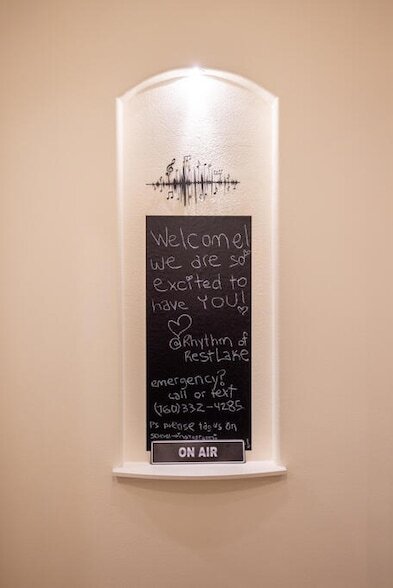 Welcome!
we are so
excited to
have YOU!
@Rhythm of
RestLake
emergency?
call or text
(760)332-4285
Ps please tag us on
ON AIR